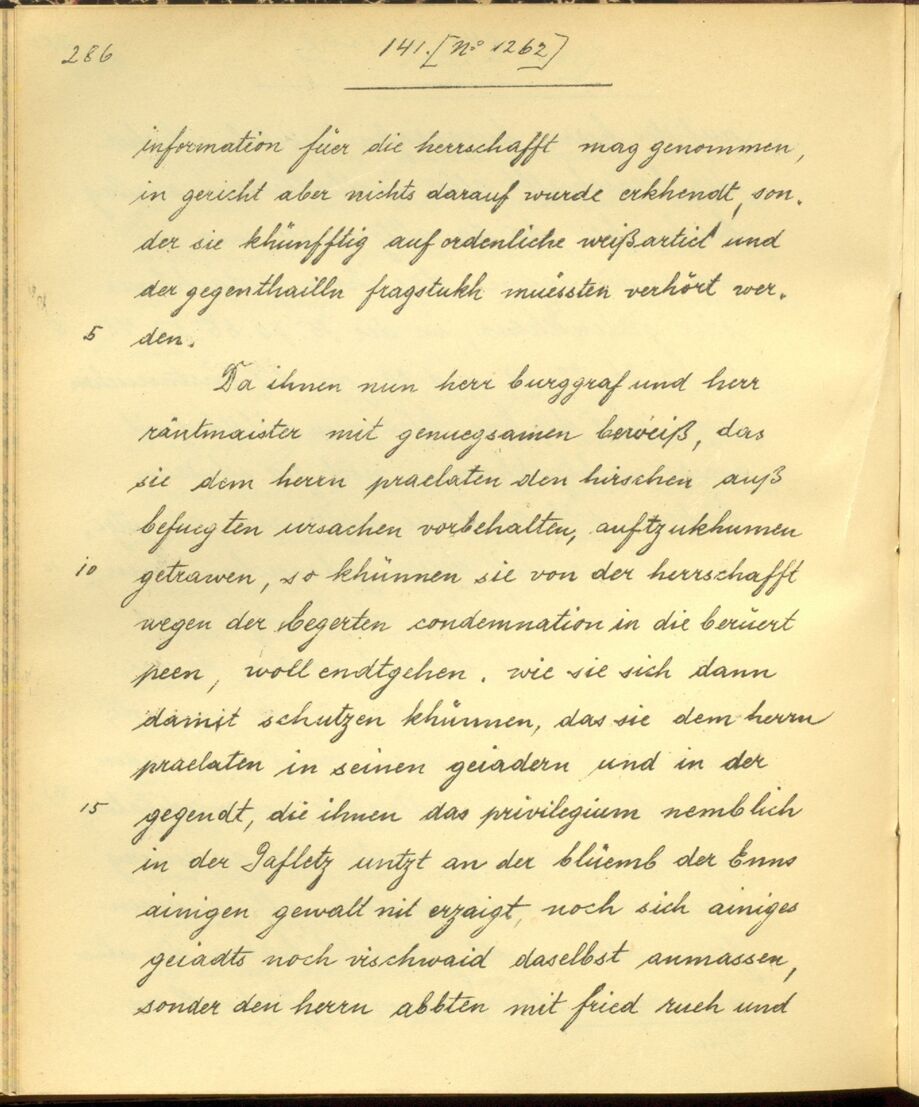 286
141. [No 1262]
information füer die herrschafft mag genommen,
in gericht aber nichts darauf wurde erkhendt, son-
der sie khünfftig auf ordenliche weißarticl und
der gegenthailln fragstukh müessten verhört wer-
5 den.
Da ihnen nun herr burggraf und herr
räntmaister mit genuegsamen beweiß, das
sie dem herrn praelaten den hirschen auß
befuegten ursachen vorbehalten, auftzukhumen
10 getrawen, so khünnen sie von der herrschafft
wegen der begerten condemnation in die berüert
peen, woll endtgehen. wie sie sich dann
damit schutzen khünnen, das sie dem herrn
praelaten in seinen geiadern und in der
15 gegendt, die ihnen das privilegium nemblich
in der Jafletz untzt an der blüemb der Enns
ainigen gewalt nit erzaigt, noch sich ainiges
geiadts noch vischwaid daselbst anmassen,
sonder den herrn abbten mit fried rueh und